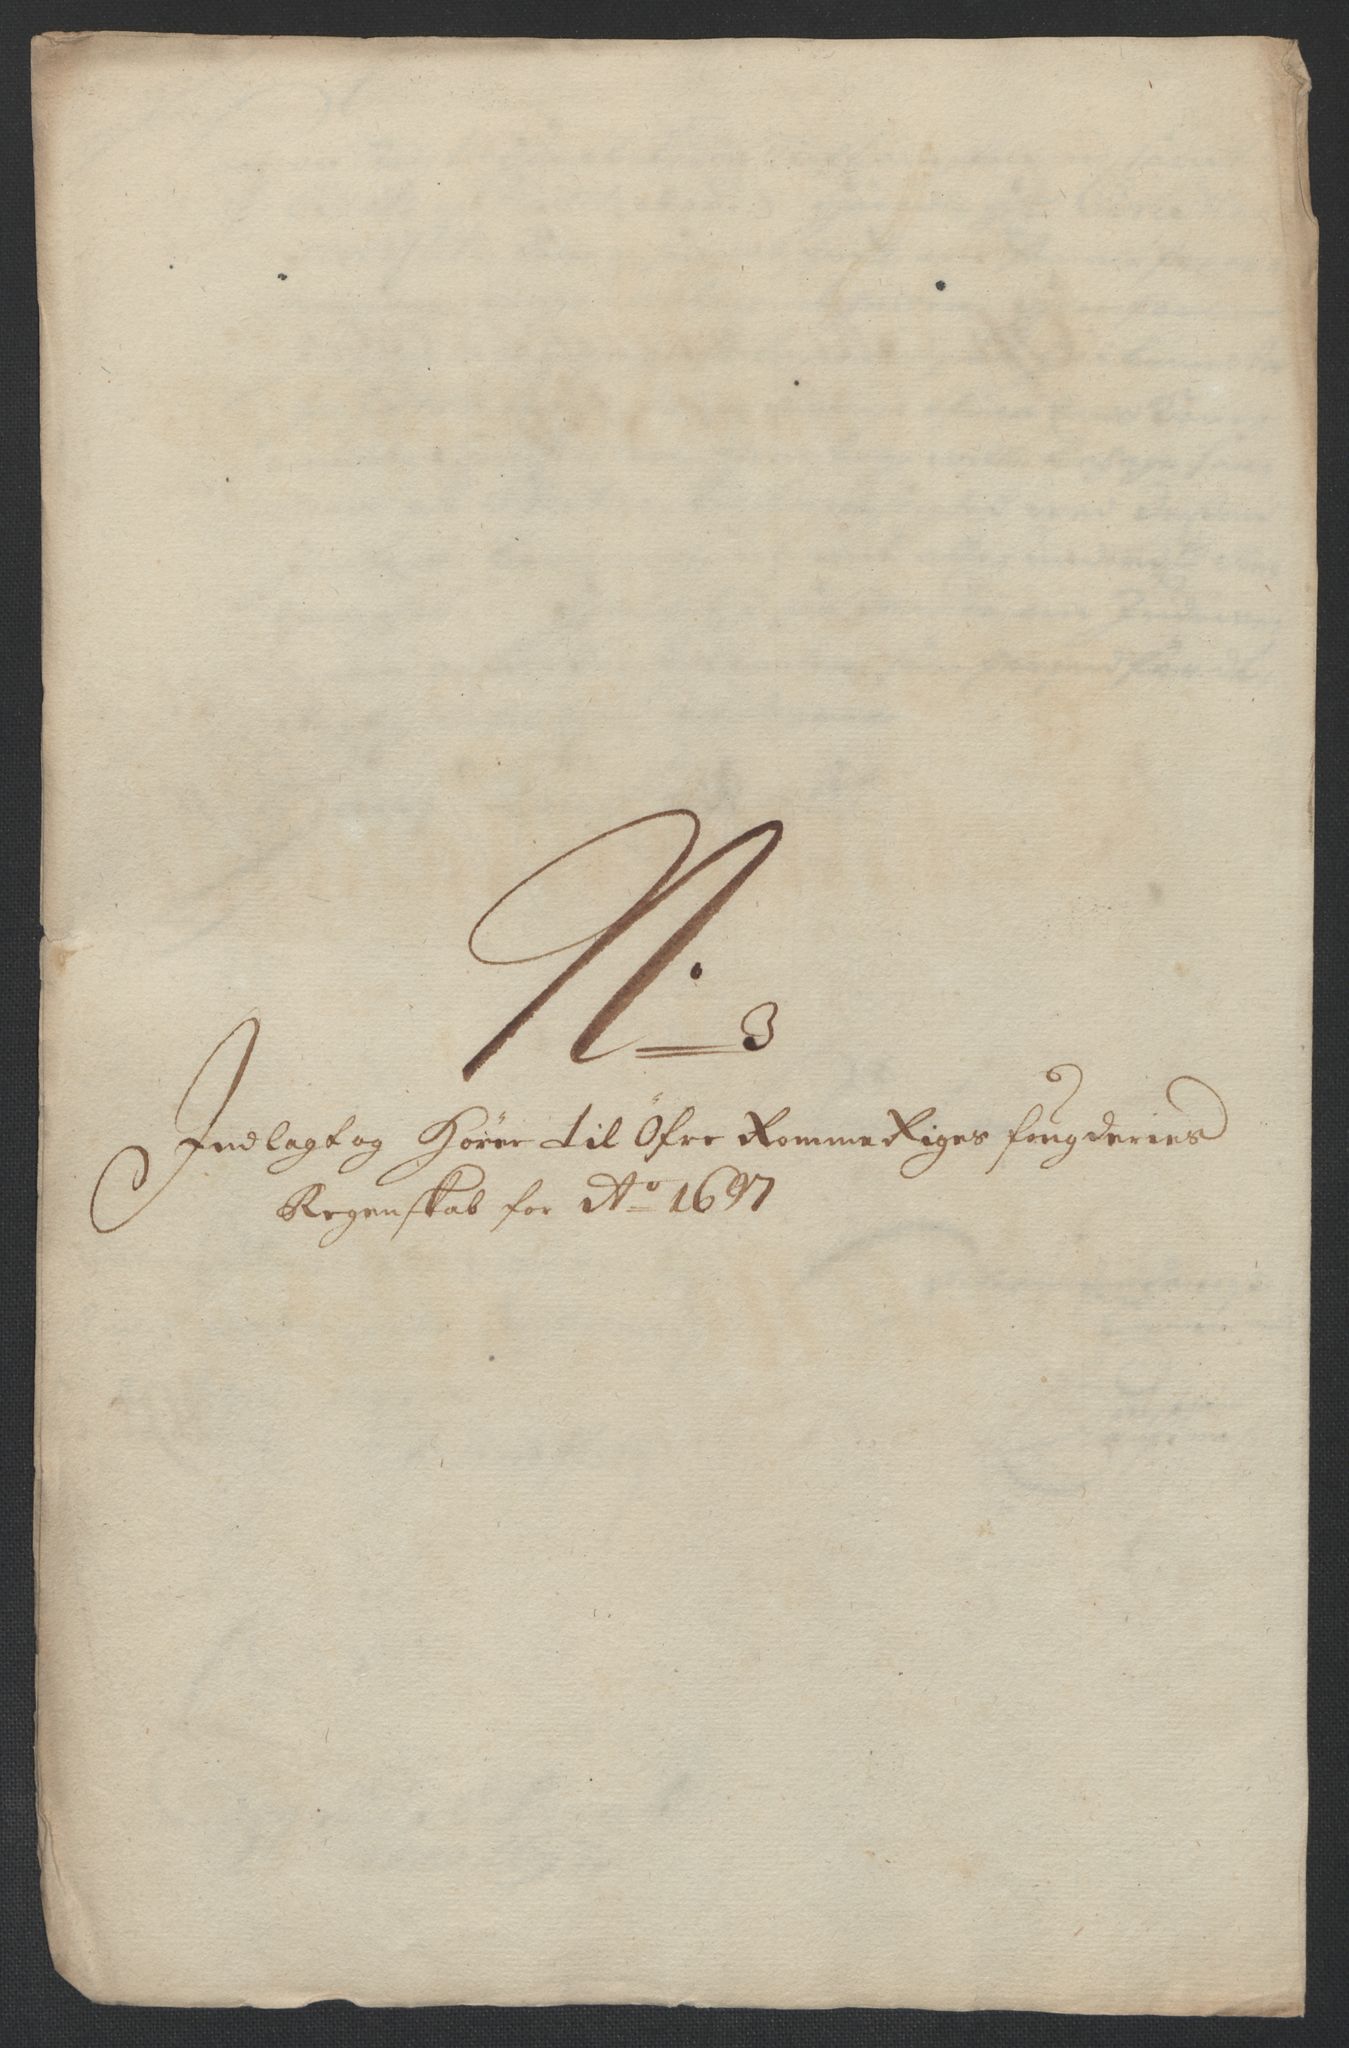 N. 3
Indlagt og Hører til Øfre Romme Riges fougderies
Regenskab for Ao 1697